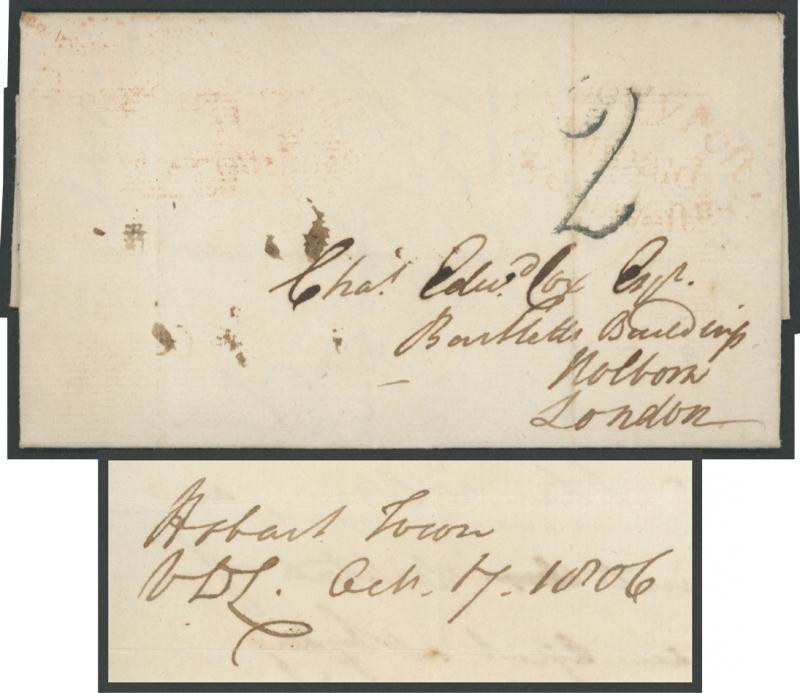 2
Chaˢ. Edwᵈ. Cox Esqr.
Bartletts Buildings
Holborn
London
Hobart Town
VDL. Oct. 17. 1806